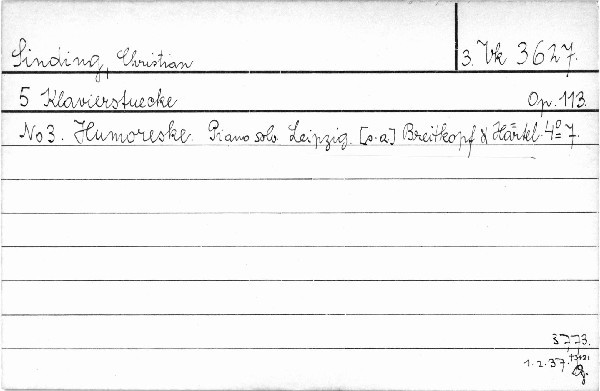 Sinding, Christian 3. Vk 3627.
5 Klavierstuecke Op. 113.
No 3. Humoreske. Piano solo. Leipzig. [s.a.] Breitkopf & Härtel. 4º 7.
3773.
1.2.37.